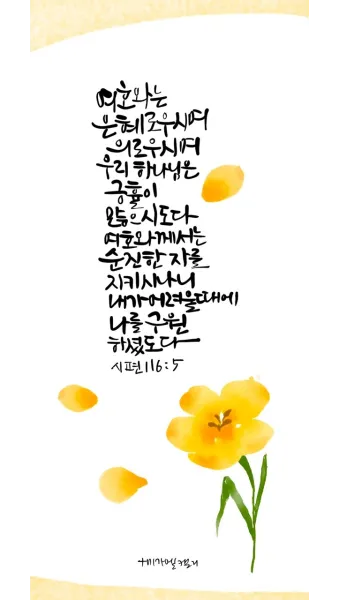 여호와는
은혜로우시며
의로우시며
우리 하나님은
긍휼이
많으시도다
여호와께서는
순진한 자를
지키시나니
내가 어려울 때에
나를 구원
하셨도다
시편 116:5